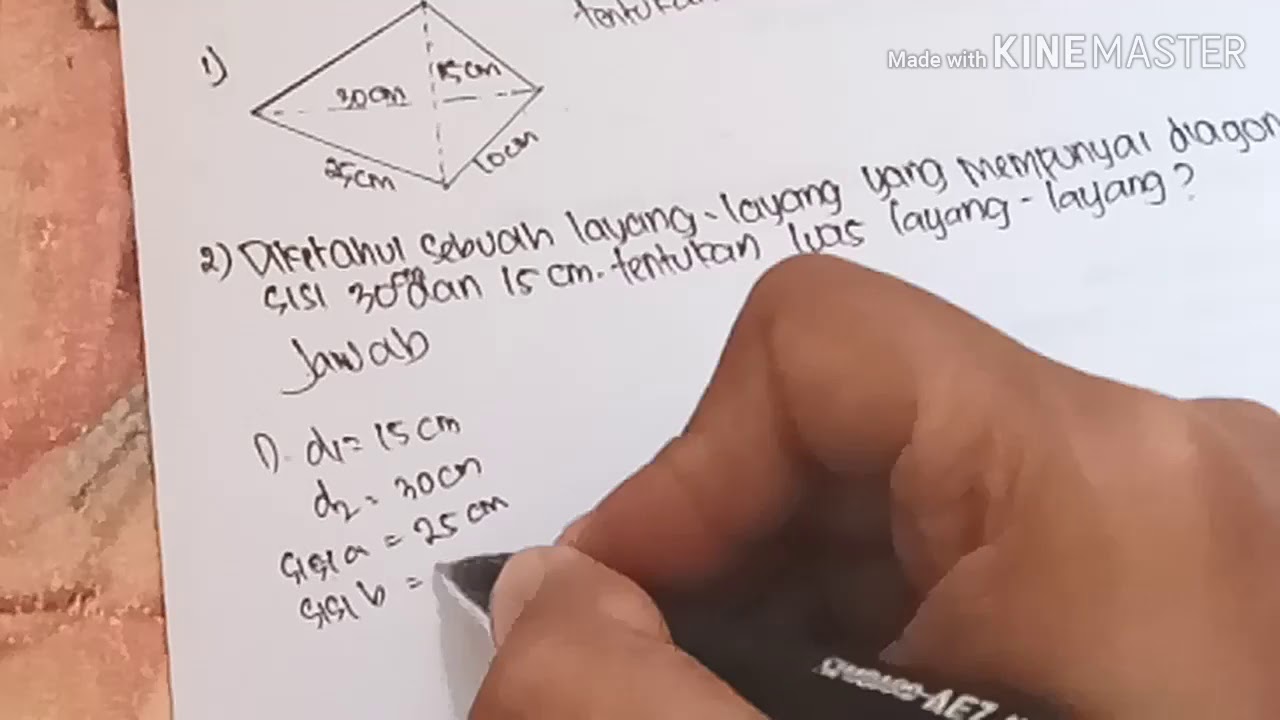 Made with KINEMASTER
tentukan
1)
15 cm
30 cm
25 cm
10 cm
2) Diketahui sebuah layang-layang yang mempunyai diagon
sisi 30 cm dan 15 cm. tentukan luas layang-layang?
Jawab
1). d1 = 15 cm
d2 = 30 cm
sisi a = 25 cm
sisi b =